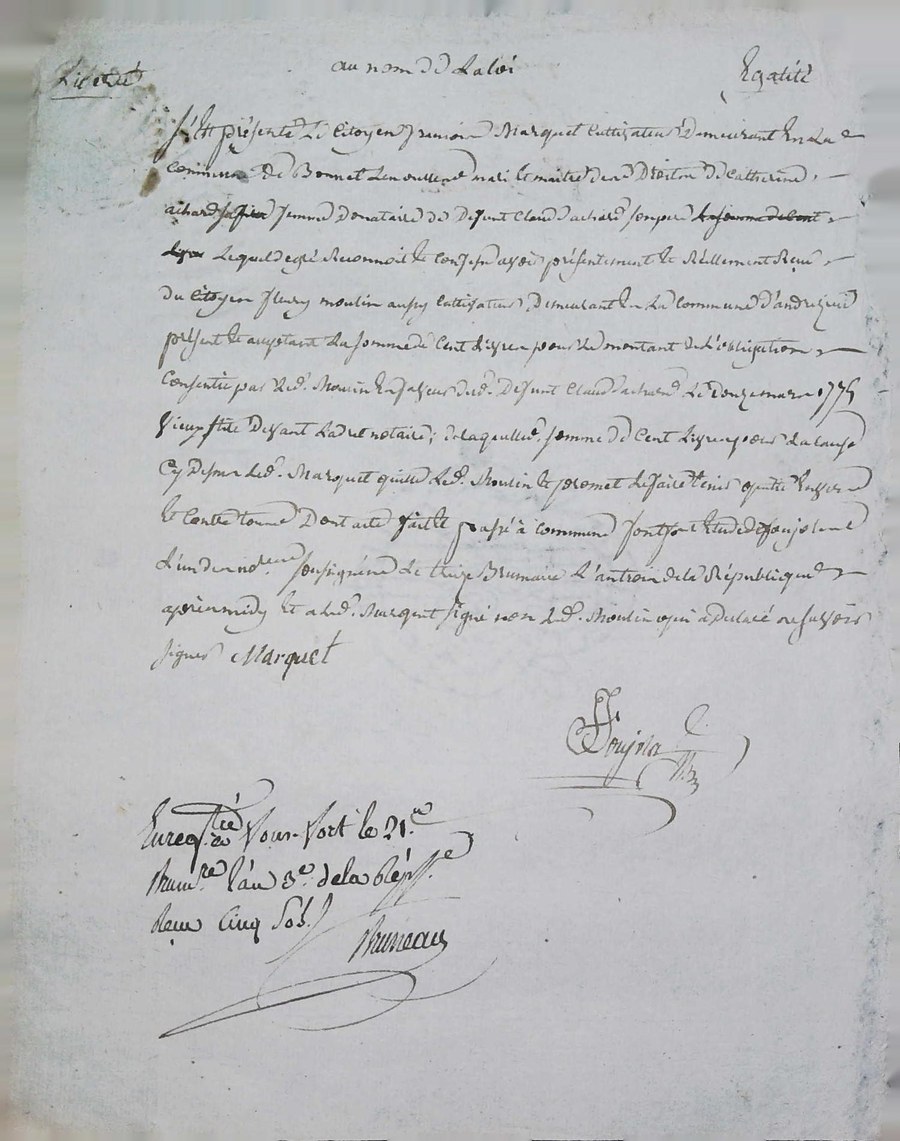 Liberté au nom de La loi Egalité
S'est présenté Le Citoyen françois Marquet Cultivateur demeurant En La
Commune de Bonnet mari Et maitre des Droits de Catherine
achard femme Donataire de Defunt Claude achard son pere
Lequel de gré Reconnoit Et Confesse avoir présentement Et Réellement Reçu
du Citoyen fleury moulin aussy Cultivateur, Demeurant En La Commune d'andrezieu
présent Et acceptant La somme de Cent Livres pour Le montant de L'obligation
Consentie par Led. Moulin En faveur dud. Defunt Claude achard Le douze mars 1775
vieux stile devant Ladret notaire; De laquelle somme de Cent Livres pour La Cause
Cy Dessus Led. Marquet quitte Led. Moulin Et promet Le faire tenir quitte Envers
Et Contre tous Dont acte fait Et passé à Commune fontfort Etude
L'un des notres soussignés Le treize Brumaire L'an trois de la République
après midy Et a Led. Marquet signé non Led. Moulin qui a Declaré ne savoir
signer Marquet
Enregtré à Vour-Fort le 21.e
Brum.re l'an 3.e de la Rép.
Reçu Cinq Sols
Bruneau